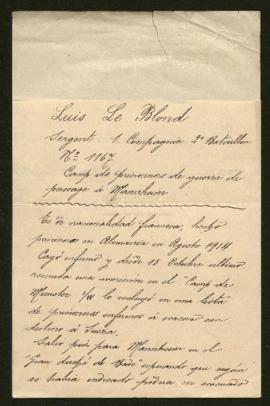 Luis Le Blond
Sergent 1. Compagnie 2º Bataillon
Nº 1167
Camp de prisonniers de guerre de
passage à Mannheim
Es de nacionalidad francesa, hecho
prisionero en Alemania en Agosto 1914
Cayó enfermo y desde 15 Octubre ultimo
reunida una comisión en el "Camp de
Munster I/W lo incluyó en una lista
de prisioneros enfermos á evacuar con
destino á Suiza.
Salió pues para Mannheim en el
"Gran duché de Bade esperando que según
se había indicado podria ser evacuado